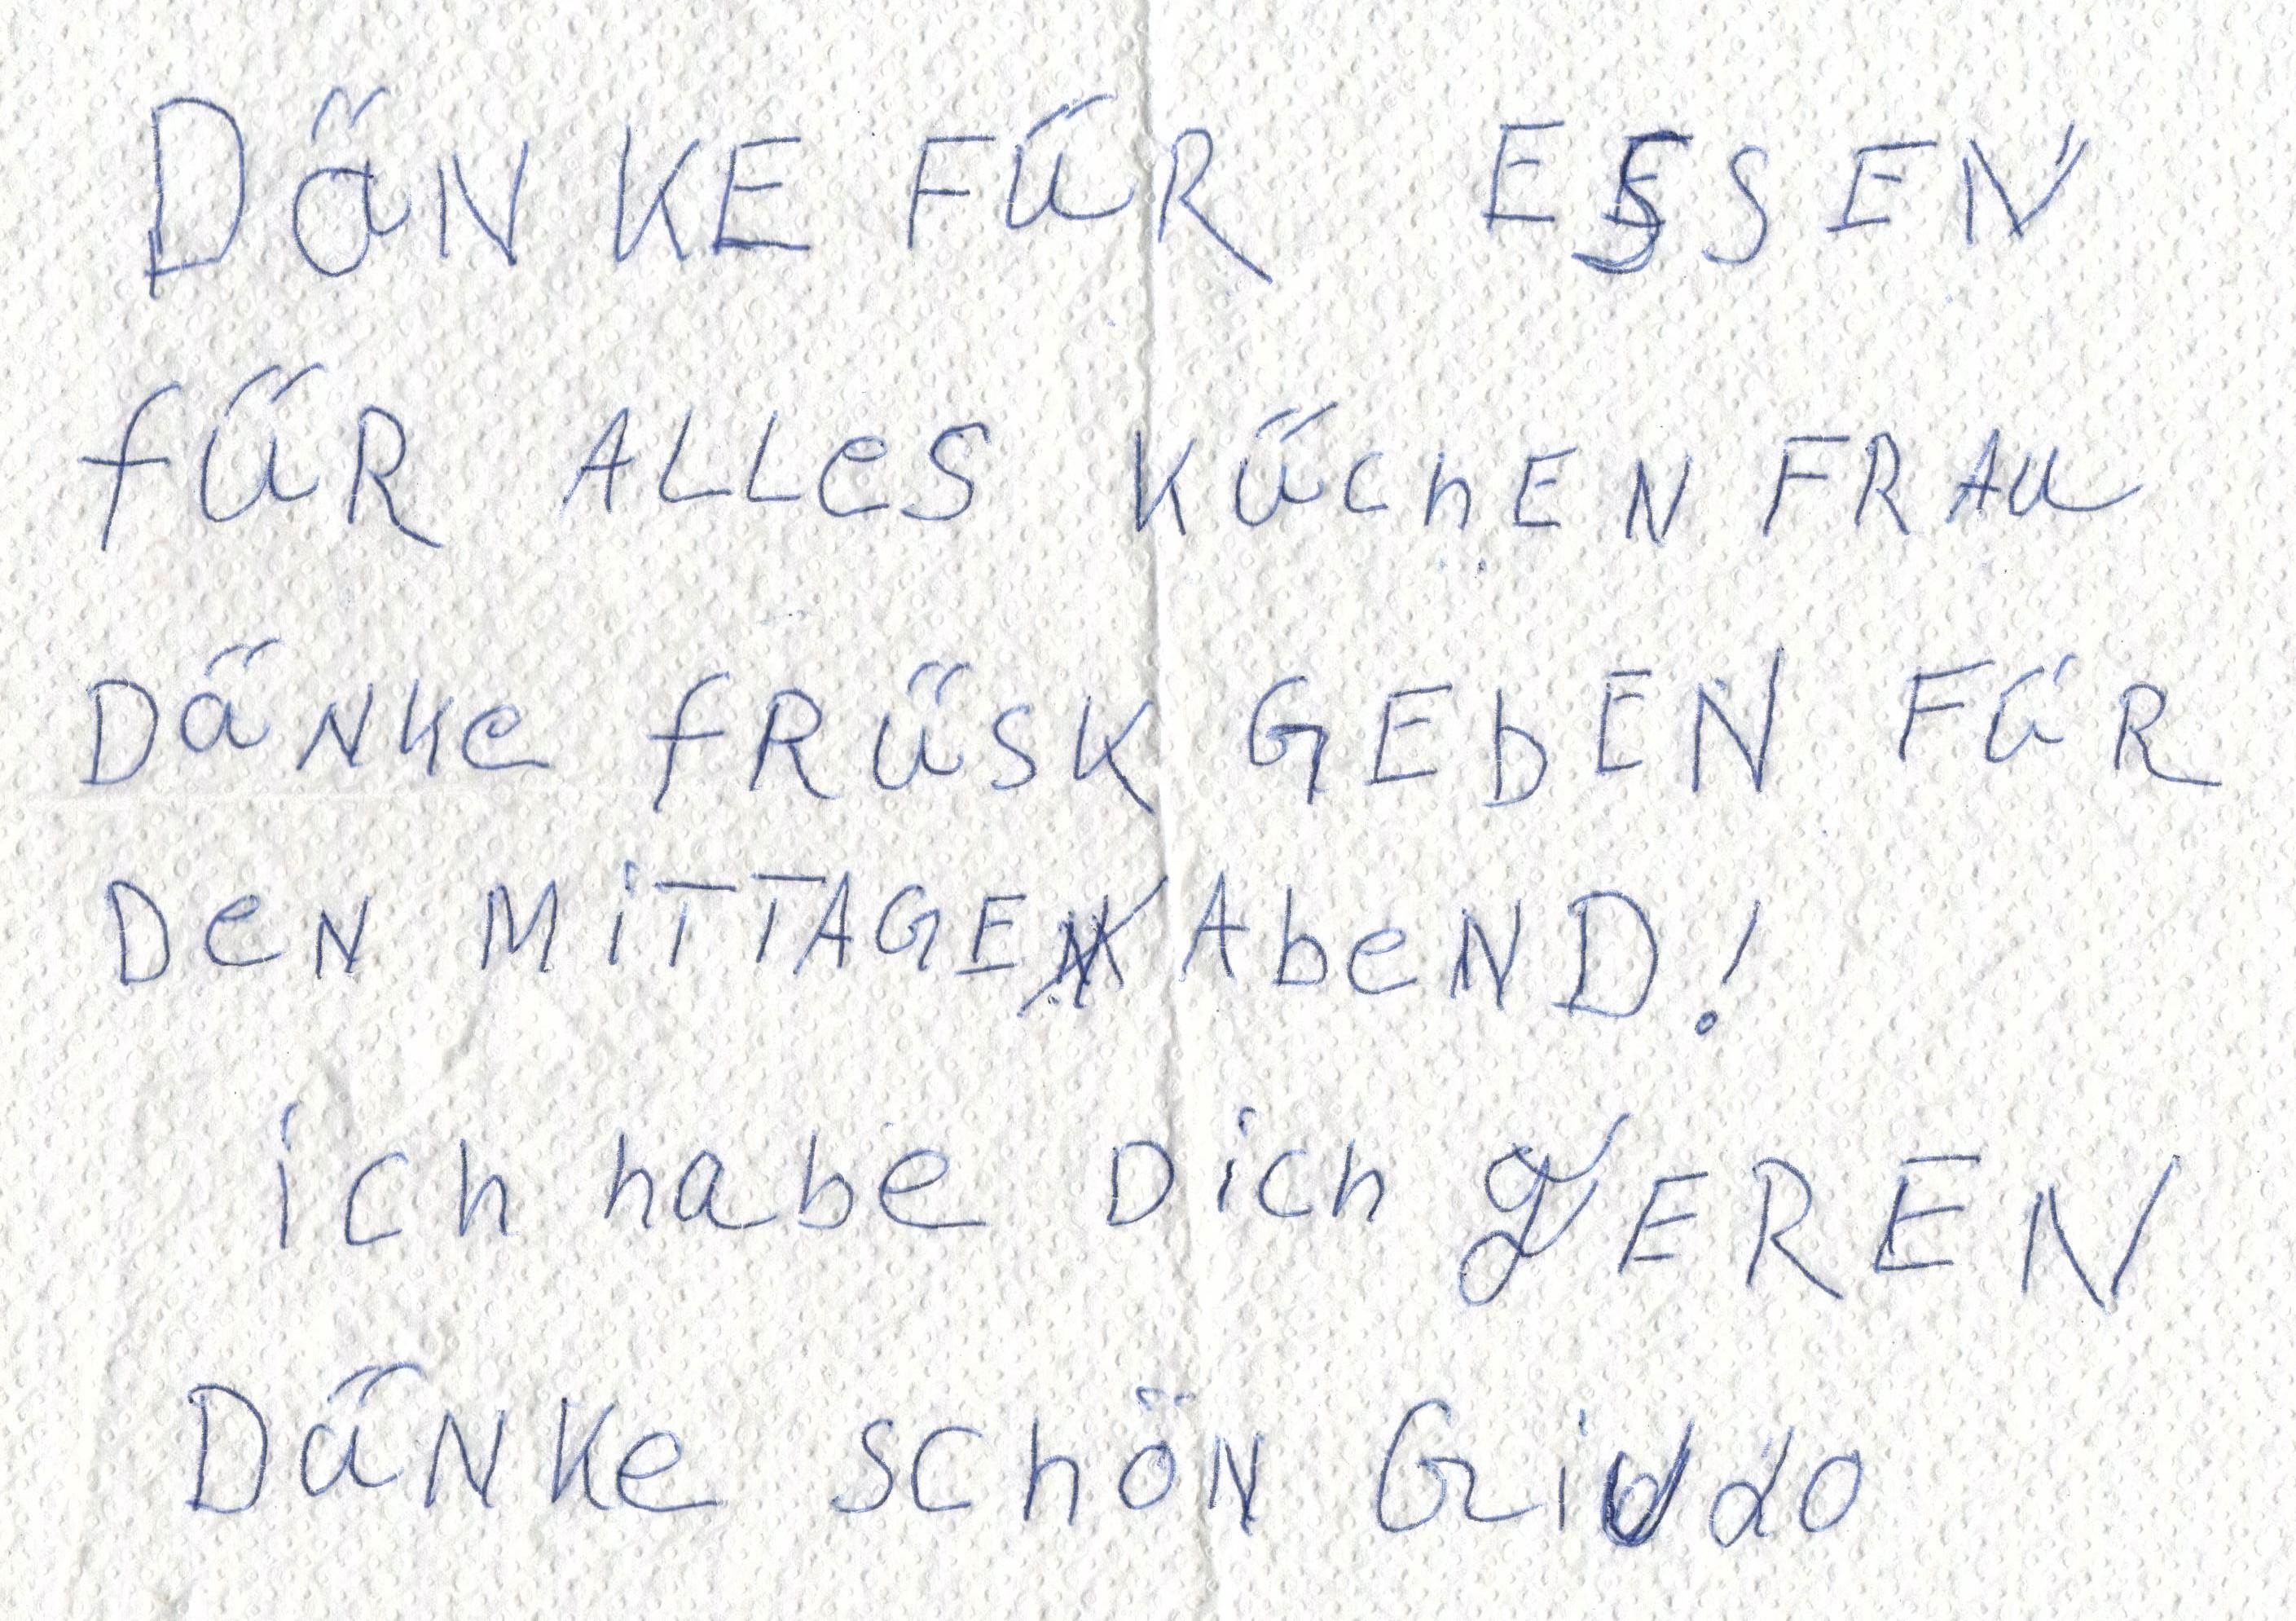 DäNKE FÜR ESSEN
fÜR ALLeS KüchEN FRAU
DäNKe fRüSK GEbEN FÜR
DeN MiTTAGE AbeND!
ich habe Dich gEREN
DäNKe SchöN